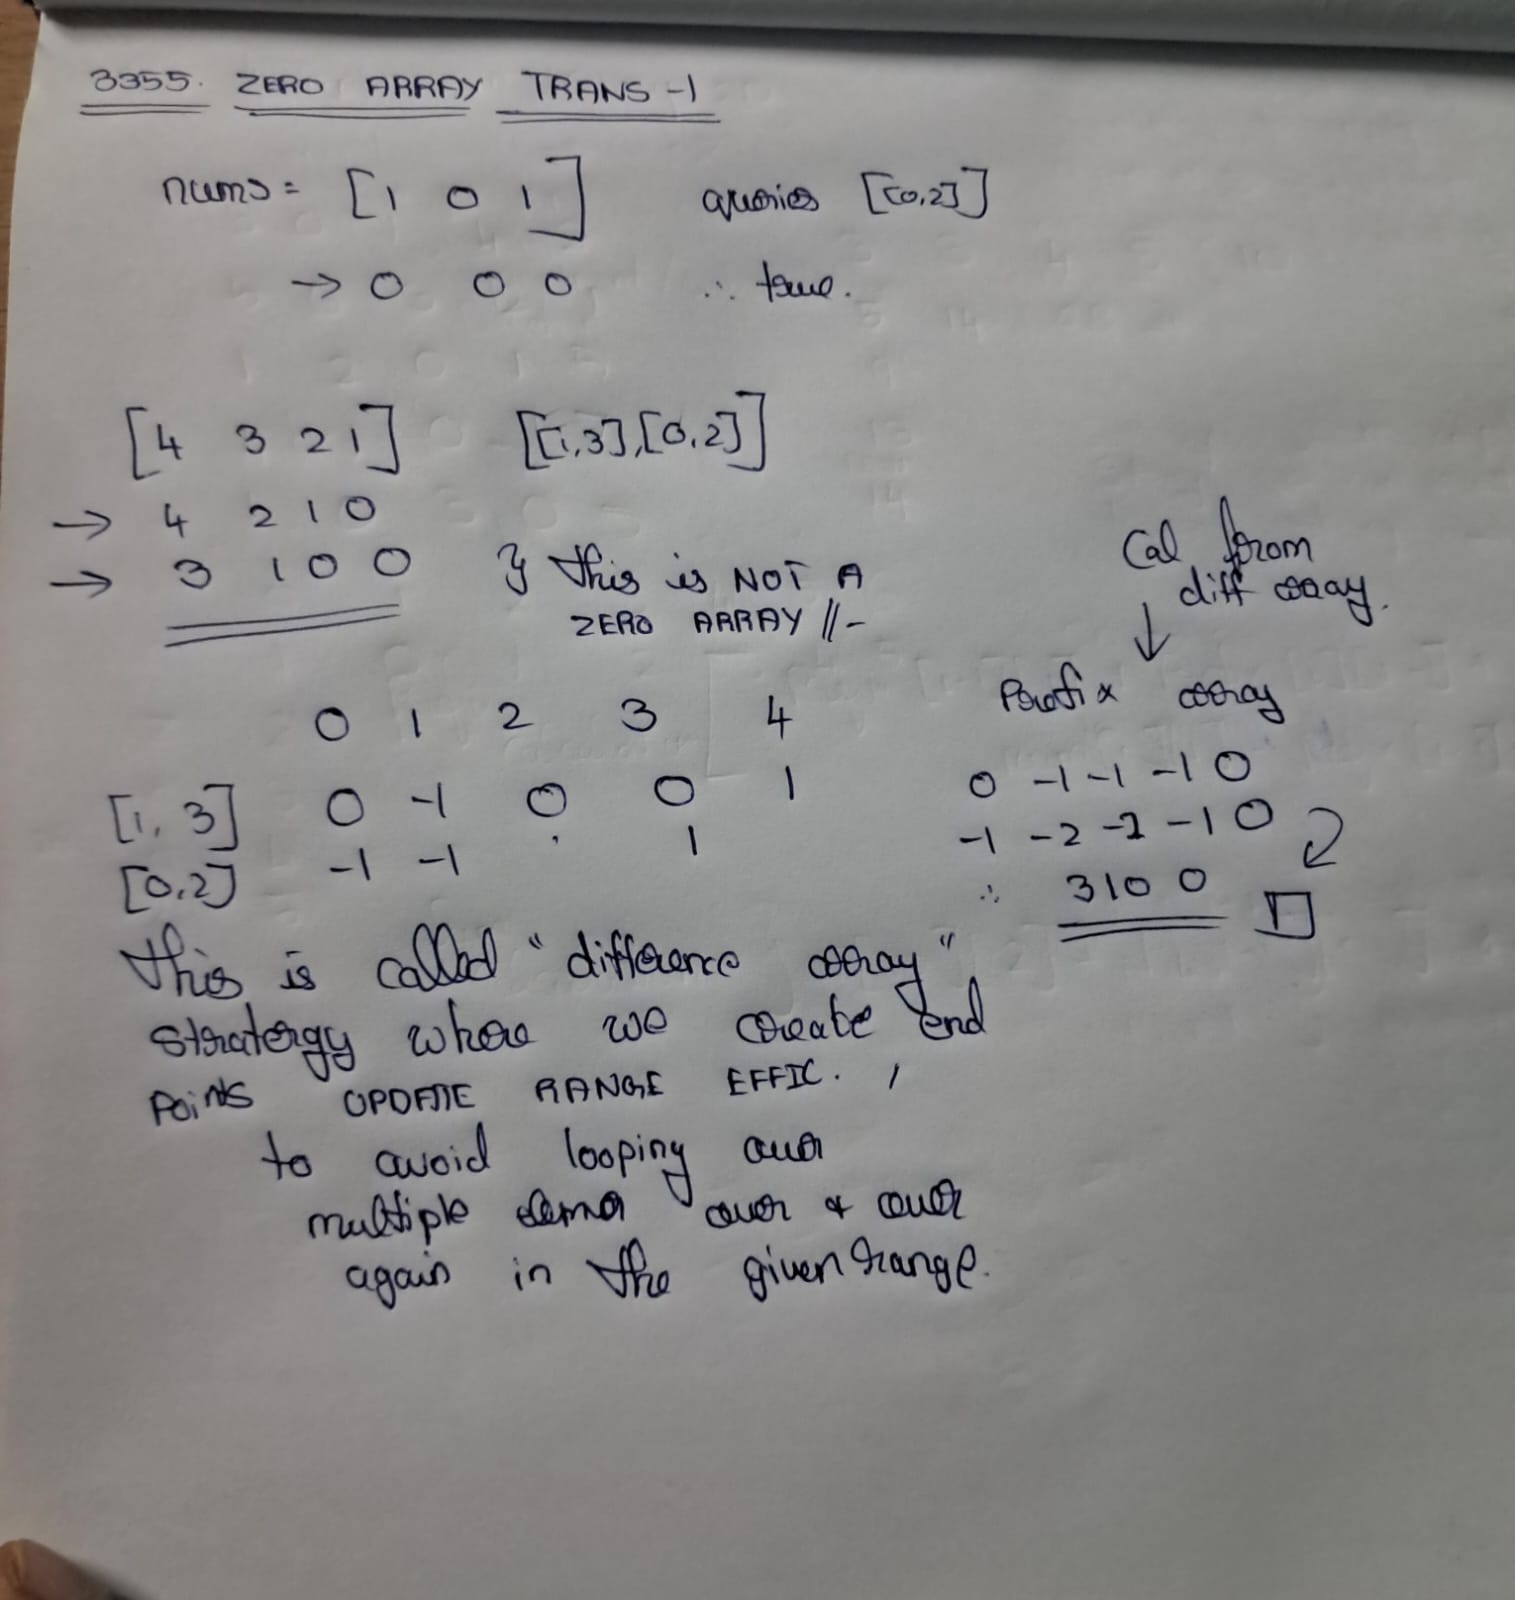 3355. ZERO ARRAY TRANS-1
nums = [1 0 1] queries [[0,2]]
→ 0 0 0 ∴ true.
[4 3 2 1] [[1,3],[0,2]]
→ 4 2 1 0
→ 3 1 0 0 } this is NOT A
ZERO ARRAY //-
Cal from
diff array.
↓
Prefix array
0 1 2 3 4
[1, 3] 0 -1 0 0 1
[0,2] -1 -1 1
0 -1 -1 -1 0
-1 -2 -2 -1 0
∴ 3 1 0 0
this is called "difference array"
stratergy where we create end
points UPDATE RANGE EFFIC. ,
to avoid looping over
multiple over & over
again in the given range.